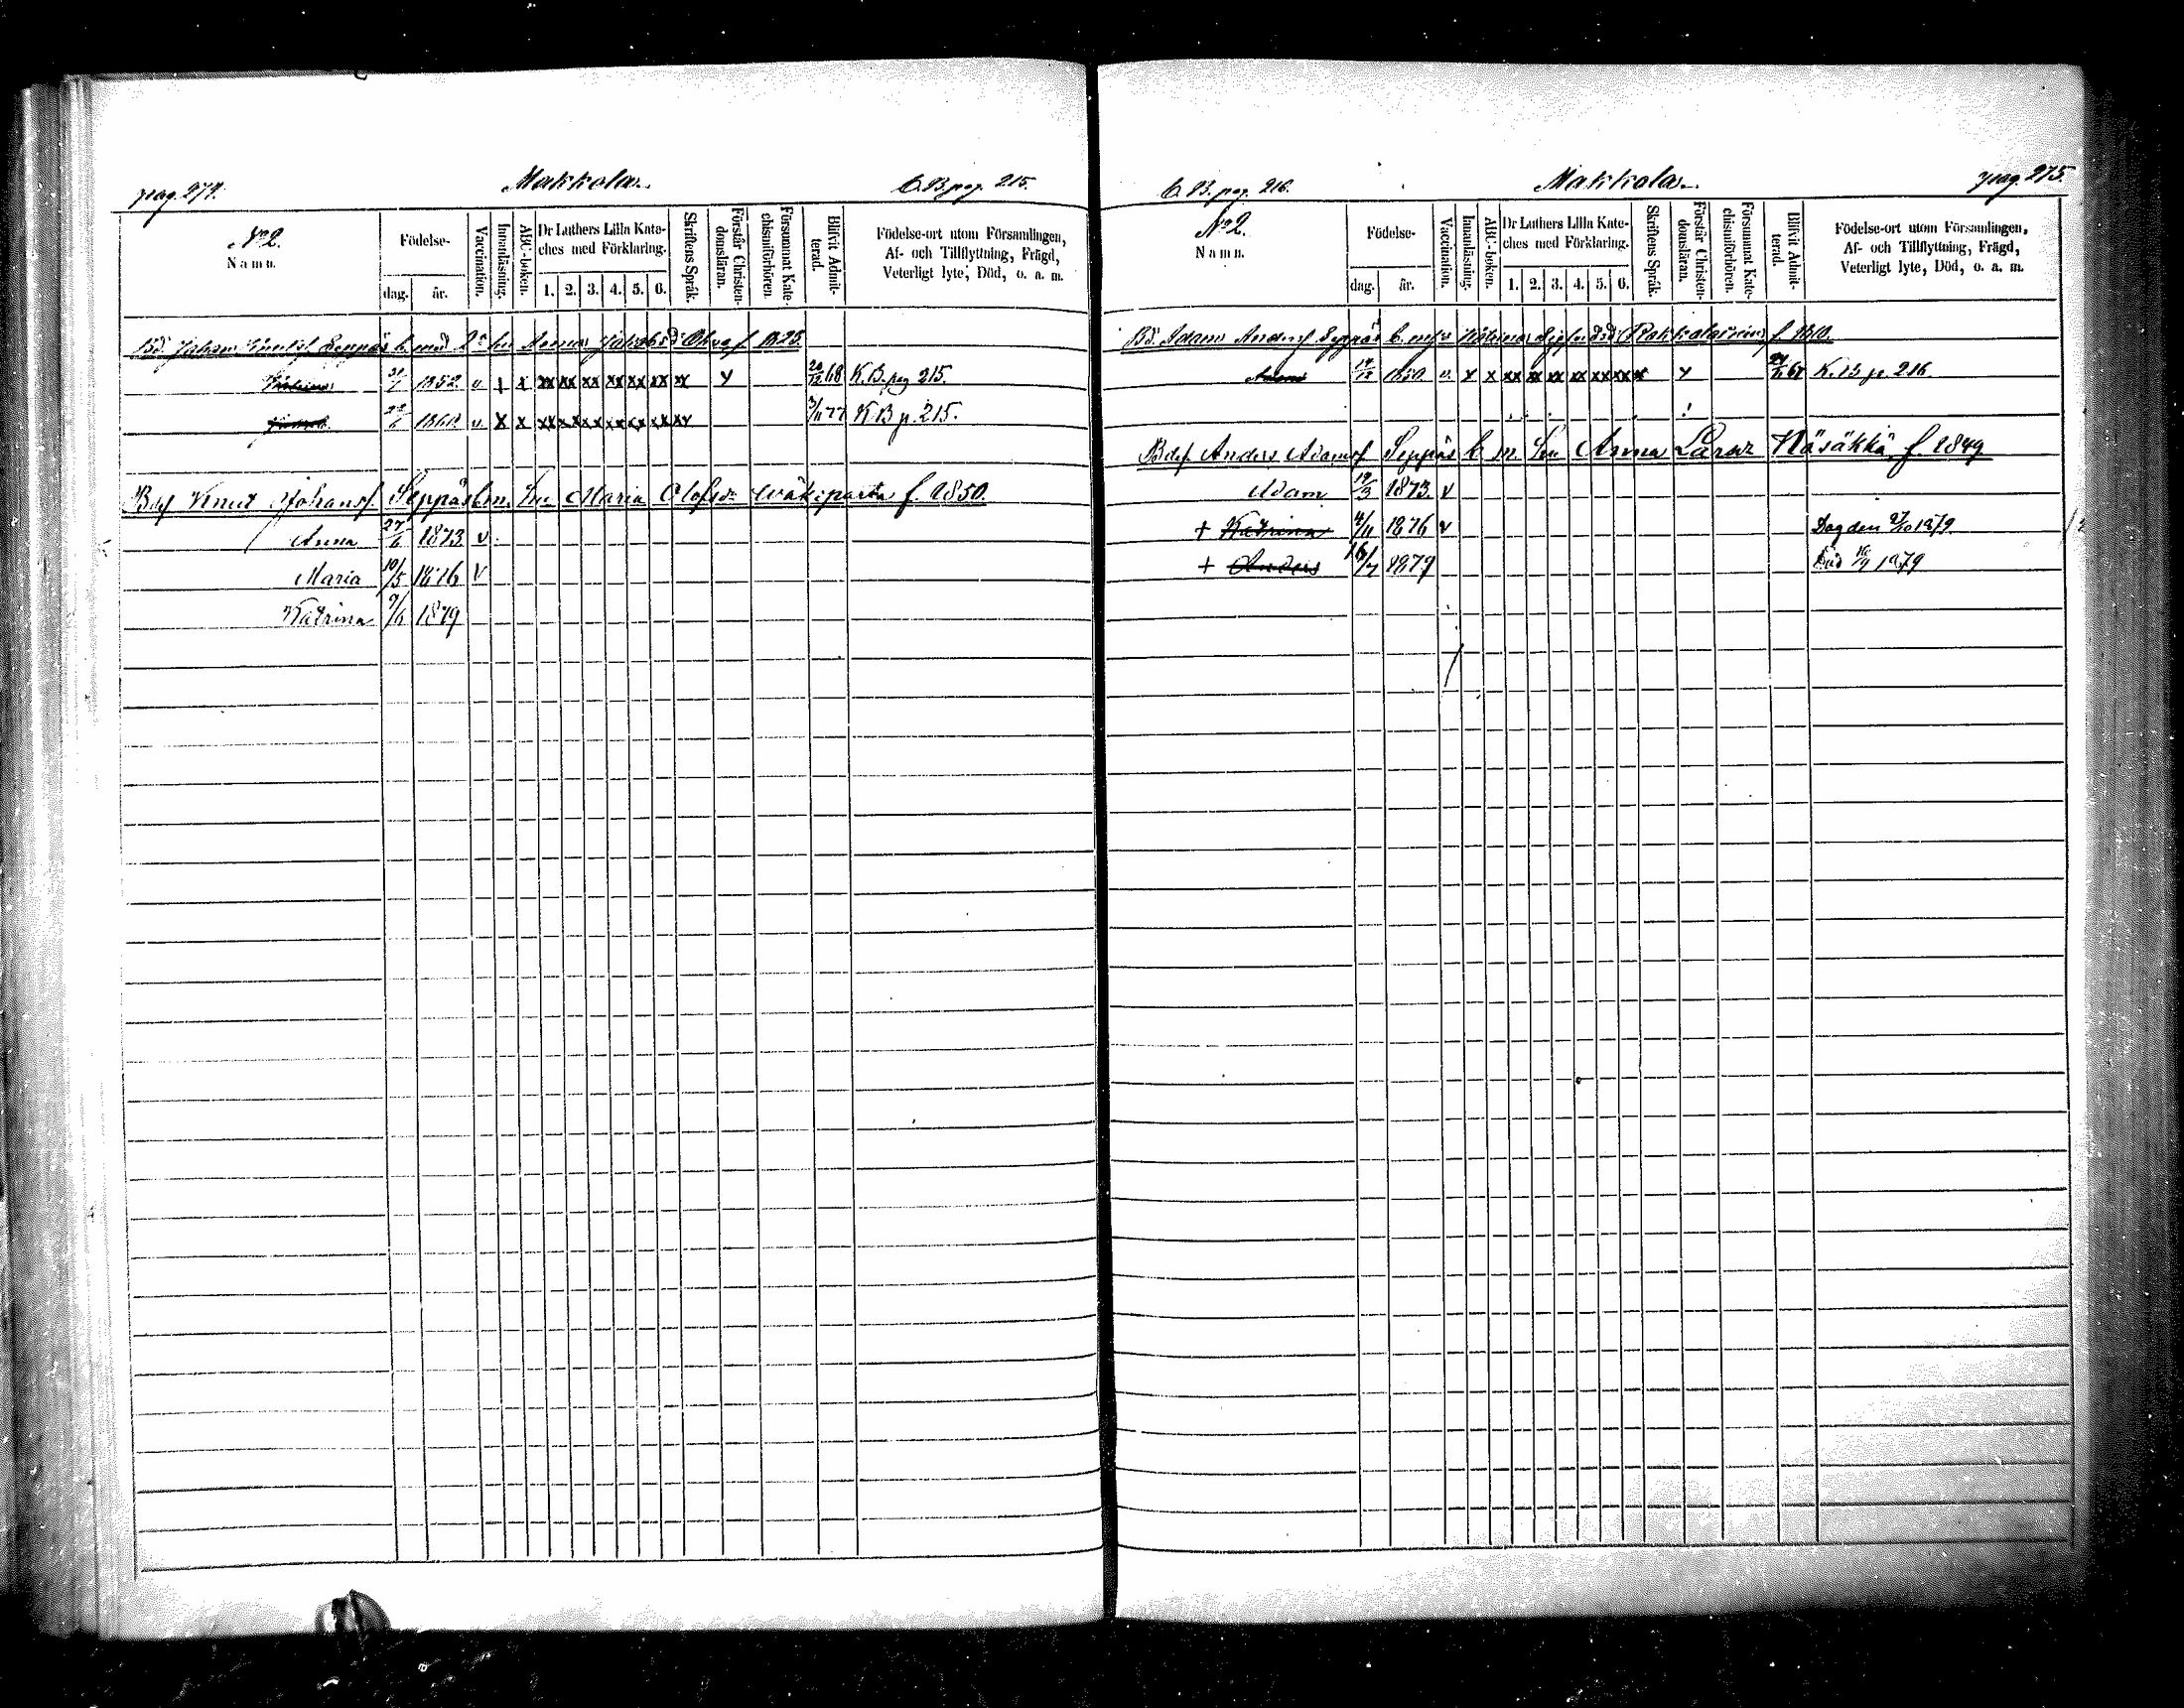 pag. 274.
Makkola.
C. B. pag. 215.
No 2.
Namn.
Födelse-
dag.
år.
Vaccination.
Innanläsning.
ABC-boken.
Dr Luthers Lilla Kate-
ches med Förklaring.
1. 2. 3. 4. 5. 6.
Skriftens Språk.
Förstår Christen-
domsläran.
Försummat Kate-
chismiförhören.
Blifvit Admit-
terad.
Födelse-ort utom Församlingen,
Af- och Tillflyttning, Frägd,
Veterligt lyte, Död, o. a. m.
Bd. Johan Seppäs b. med Anna f. 1823.
1852. v. x xx xx xx xx xx xx xx x 20/12 68 K. B. pag 215.
1860 v. x x xx xx xx xx xx xx xx 3/11 77 K B p. 215.
Bdef Knut Johansf. Seppäs b m. Hu Maria Olofsdr Wäkiparta f. 1850.
Anna 27/6 1873 v
Maria 10/5 1876 v
Katrina 9/6 1879
C. B. pag. 216.
Makkola.
pag. 275.
No 2.
Namn.
Födelse-
dag.
år.
Vaccination.
Innanläsning.
ABC-boken.
Dr Luthers Lilla Kate-
ches med Förklaring.
1. 2. 3. 4. 5. 6.
Skriftens Språk.
Förstår Christen-
domsläran.
Försummat Kate-
chismiförhören.
Blifvit Admit-
terad.
Födelse-ort utom Församlingen,
Af- och Tillflyttning, Frägd,
Veterligt lyte, Död, o. a. m.
Bd. Adam Andersf Seppäs b. Katrina
1850. v. x x xx xx xx xx xx xx x x K. B p. 216
Bdef. Anders Adamsf Seppäs b m Hu Anna Larsdr Näsäkkä f. 1849
Adam 19/3 1873. v
+ Katrina 4/11 1876 v Dog den 2/10 1879.
+ Anders 16/7 1879 Död 1879